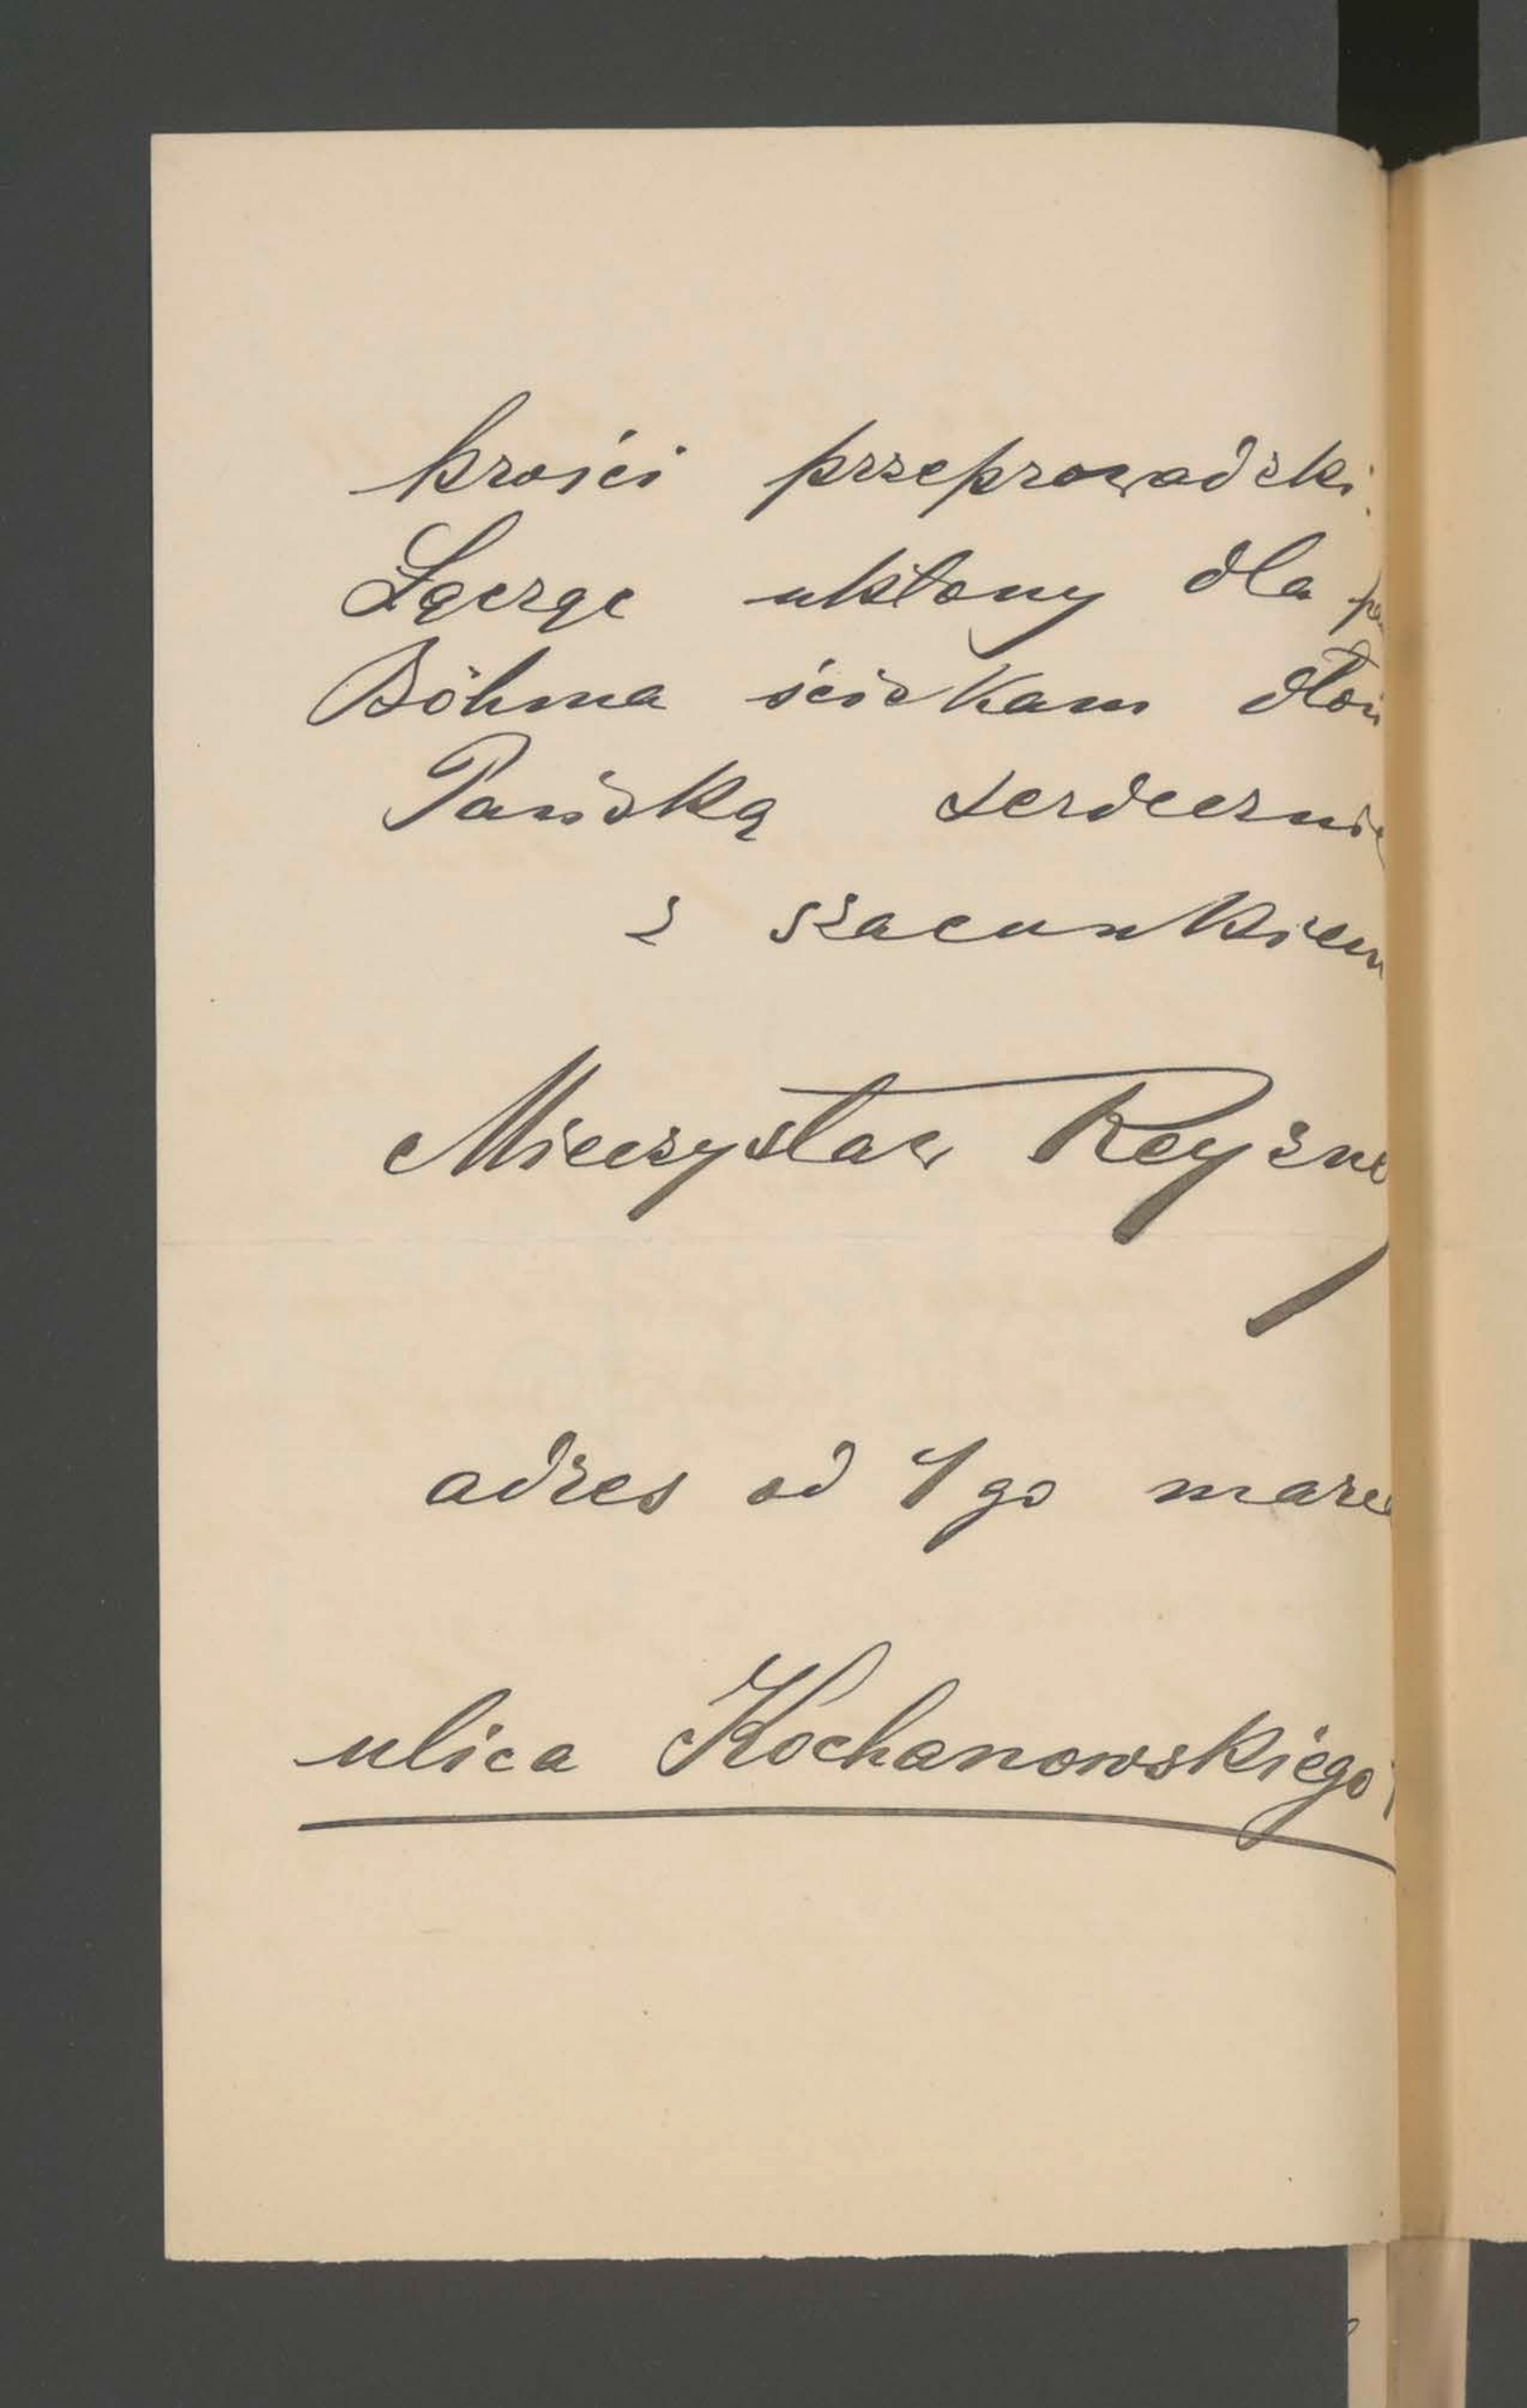 krości przeprowadzki.
Łącząc ukłony dla
Böhma ściskam dłoń
Pańską serdecznie
z szacunkiem
Mieczysław Reyzne
adres od 1 go marca
ulica Kochanowskiego